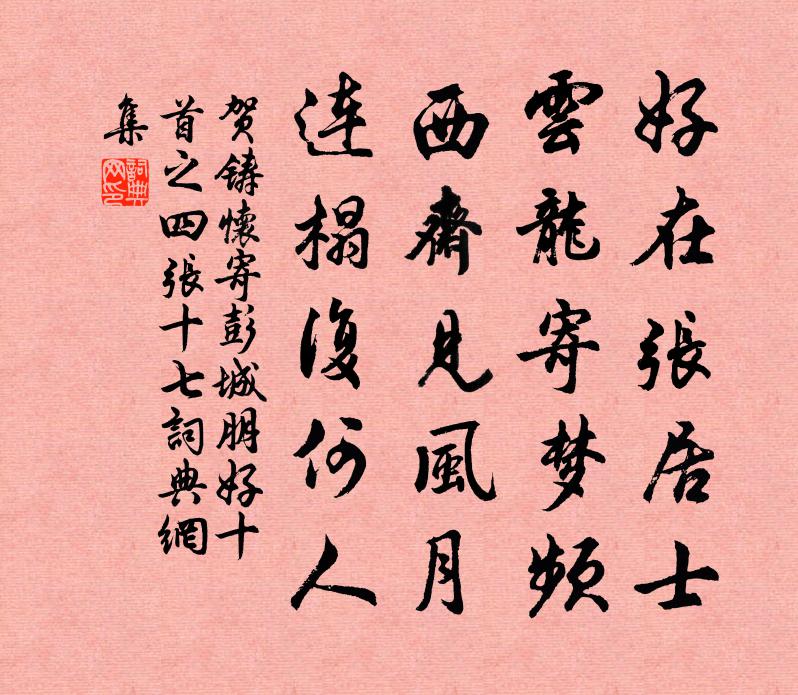 好在張居士
雲龍寄梦頻
西齋見風月
連榻復何人
贺鑄懷寄彭城朋好十
首之四張十七詞典網
集
詞典网印